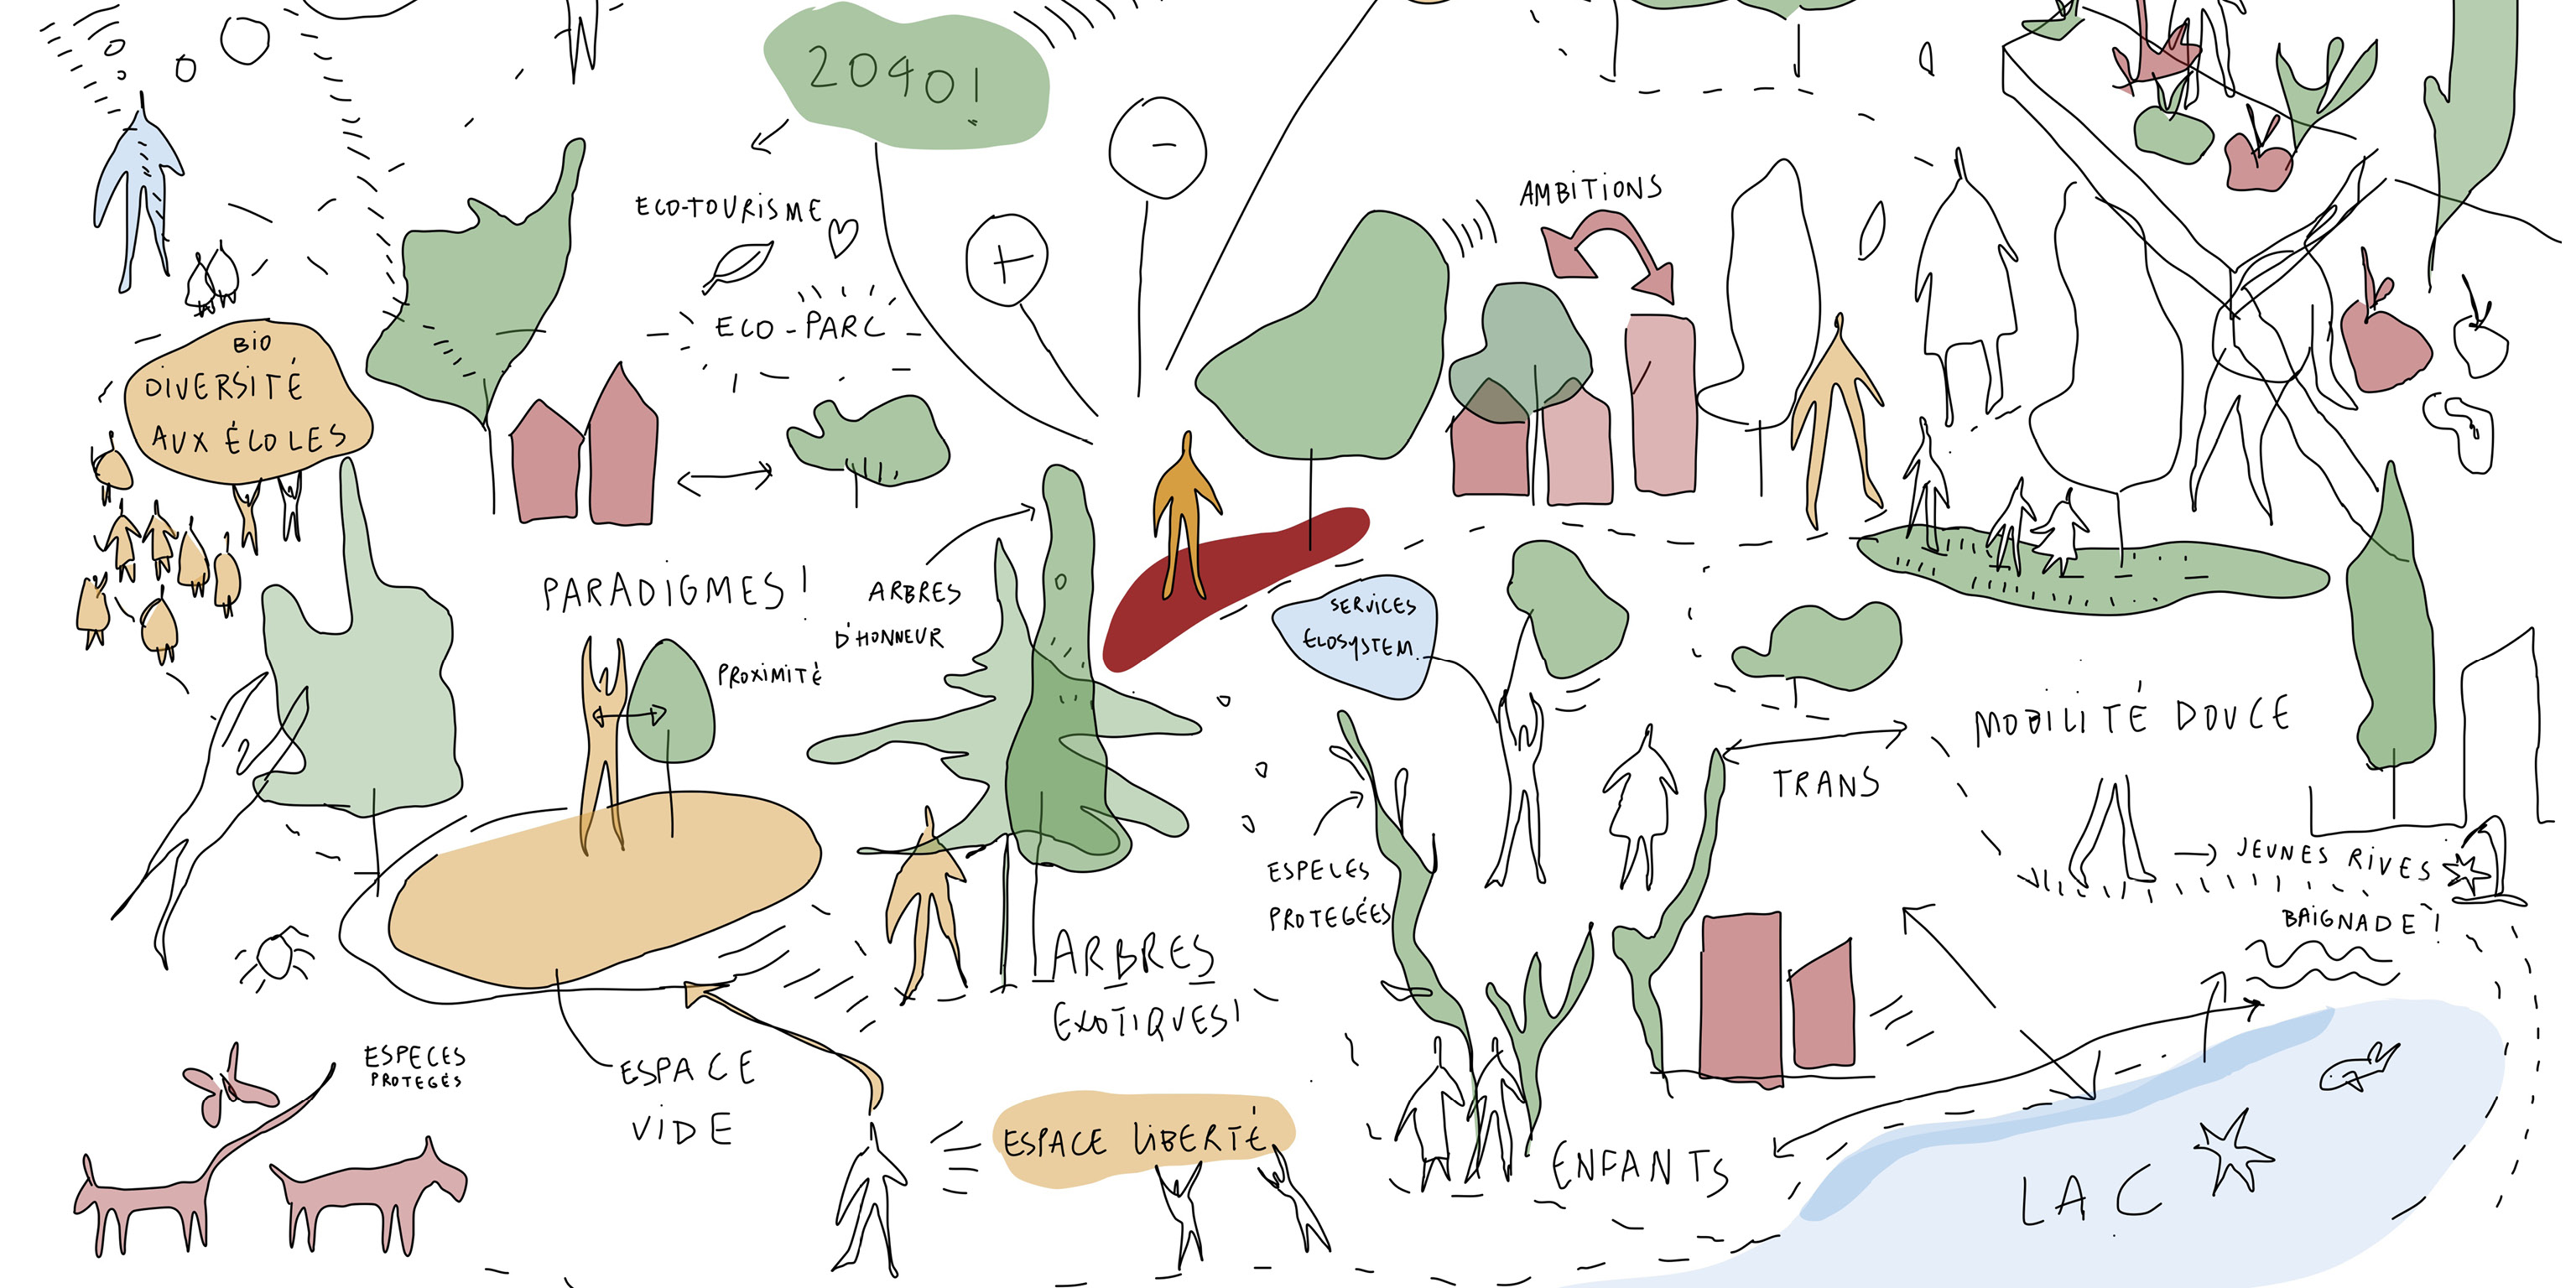 2040!
ECO-TOURISME
AMBITIONS
ECO-PARC
+
-
BIO
DIVERSITÉ
AUX ÉCOLES
PARADIGMES!
ARBRES
D'HONNEUR
PROXIMITÉ
SERVICES
ECOSYSTEM.
MOBILITÉ DOUCE
TRANS
JEUNES RIVES
BAIGNADE!
ESPECES
PROTEGÉES
ARBRES
EXOTIQUES!
ESPACE
VIDE
ESPECES
PROTEGÉS
ESPACE LIBERTÉ
ENFANTS
LAC